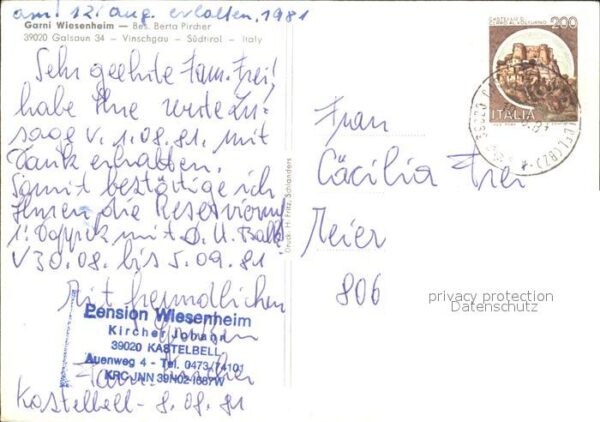 am 12. Aug. erhalten, 1981
Garni Wiesenheim — Bes. Berta Pircher
39020 Galsaun 34 — Vinschgau — Südtirol — Italy
Sehr geehrte Fam. Frei!
habe Ihre werte Zu-
sage v. 1.08.81. mit
Dank erhalten.
Somit bestätige ich
Ihnen die Reservierung
mit D. U. Balk
v 30.08. bis 5.09.81
Mit freundlichen
Pension Wiesenheim
Kircher Johann
39020 KASTELBELL
Auenweg 4 - Tel. 0473/74101
Fam. Kircher
Kastelbell - 8.08.81
Druck: H. Fritz, Schlanders
200
ITALIA
Frau
Cäcilia Frei
Meier
806
privacy protection
Datenschutz